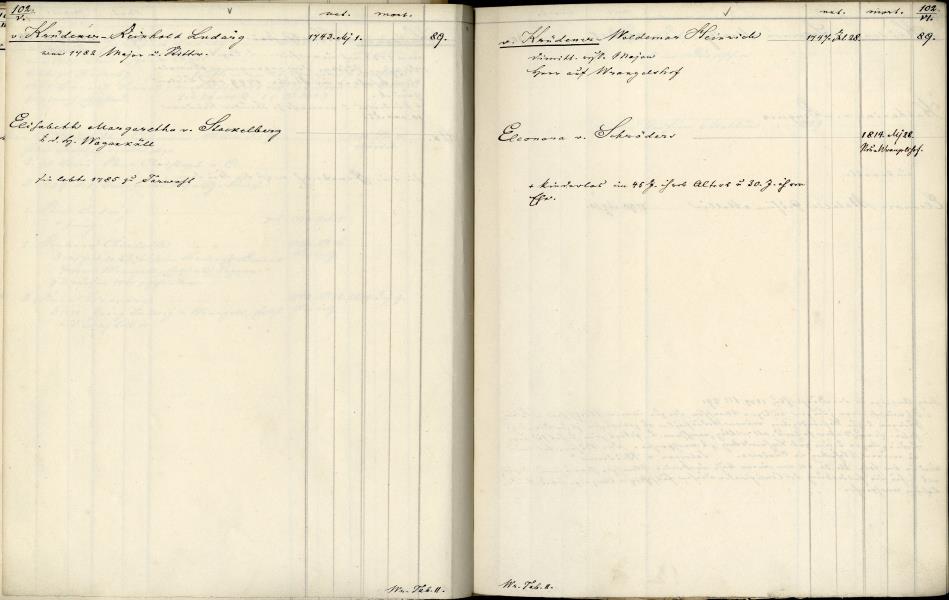 102.
V.
nat.
mort.
v. Krüdener-Reinhold Ludwig
1743. Mj 1.
89.
war 1782 Major u. Ritter.
Elisabeth Margaretha v. Stackelberg
t. d. H. Waggeküll
sie lebte 1785 zu Tarwast
Wr. Tab. II.
102.
VI.
nat.
mort.
v. Krüdener-Woldemar Heinrich
1747. Jul. 28.
89.
dimitt. russ. Major
Herr auf Wrangelshof
Eleonora v. Schröders
1814. Mj 28.
Wrangelshof.
+ kinderlos im 45 J. ihres Alters u 30. J. ihrer
Ehe.
Wr. Tab. II.